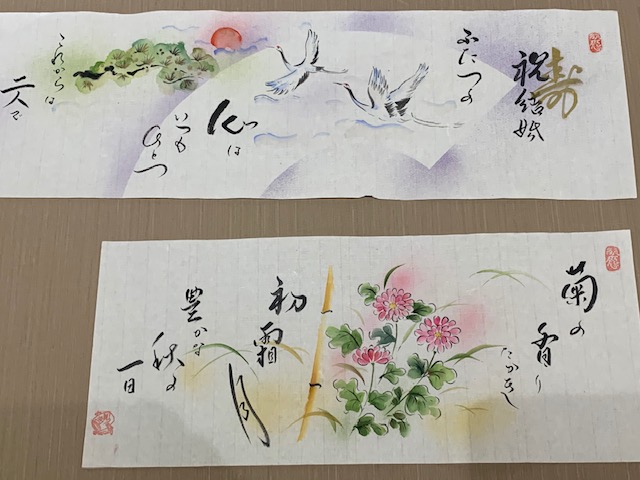 寿
祝結婚
ふたつの
心は
いつも
ひとつ
これからは
二人で
菊の
香り
たかき
初霜
月
豊かな
秋の
一日